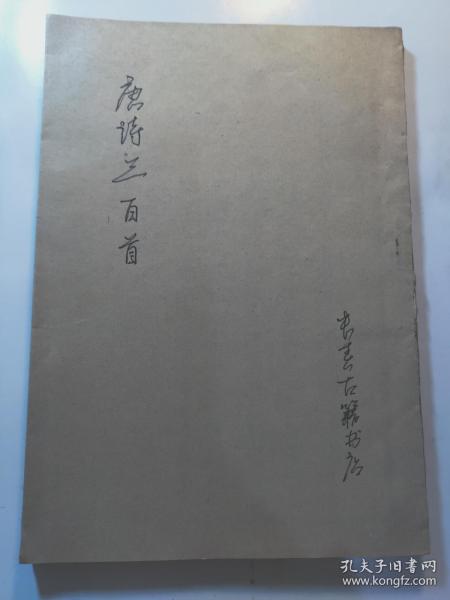 唐诗三百首
长春古籍书店
孔夫子旧书网
www.kongfz.com